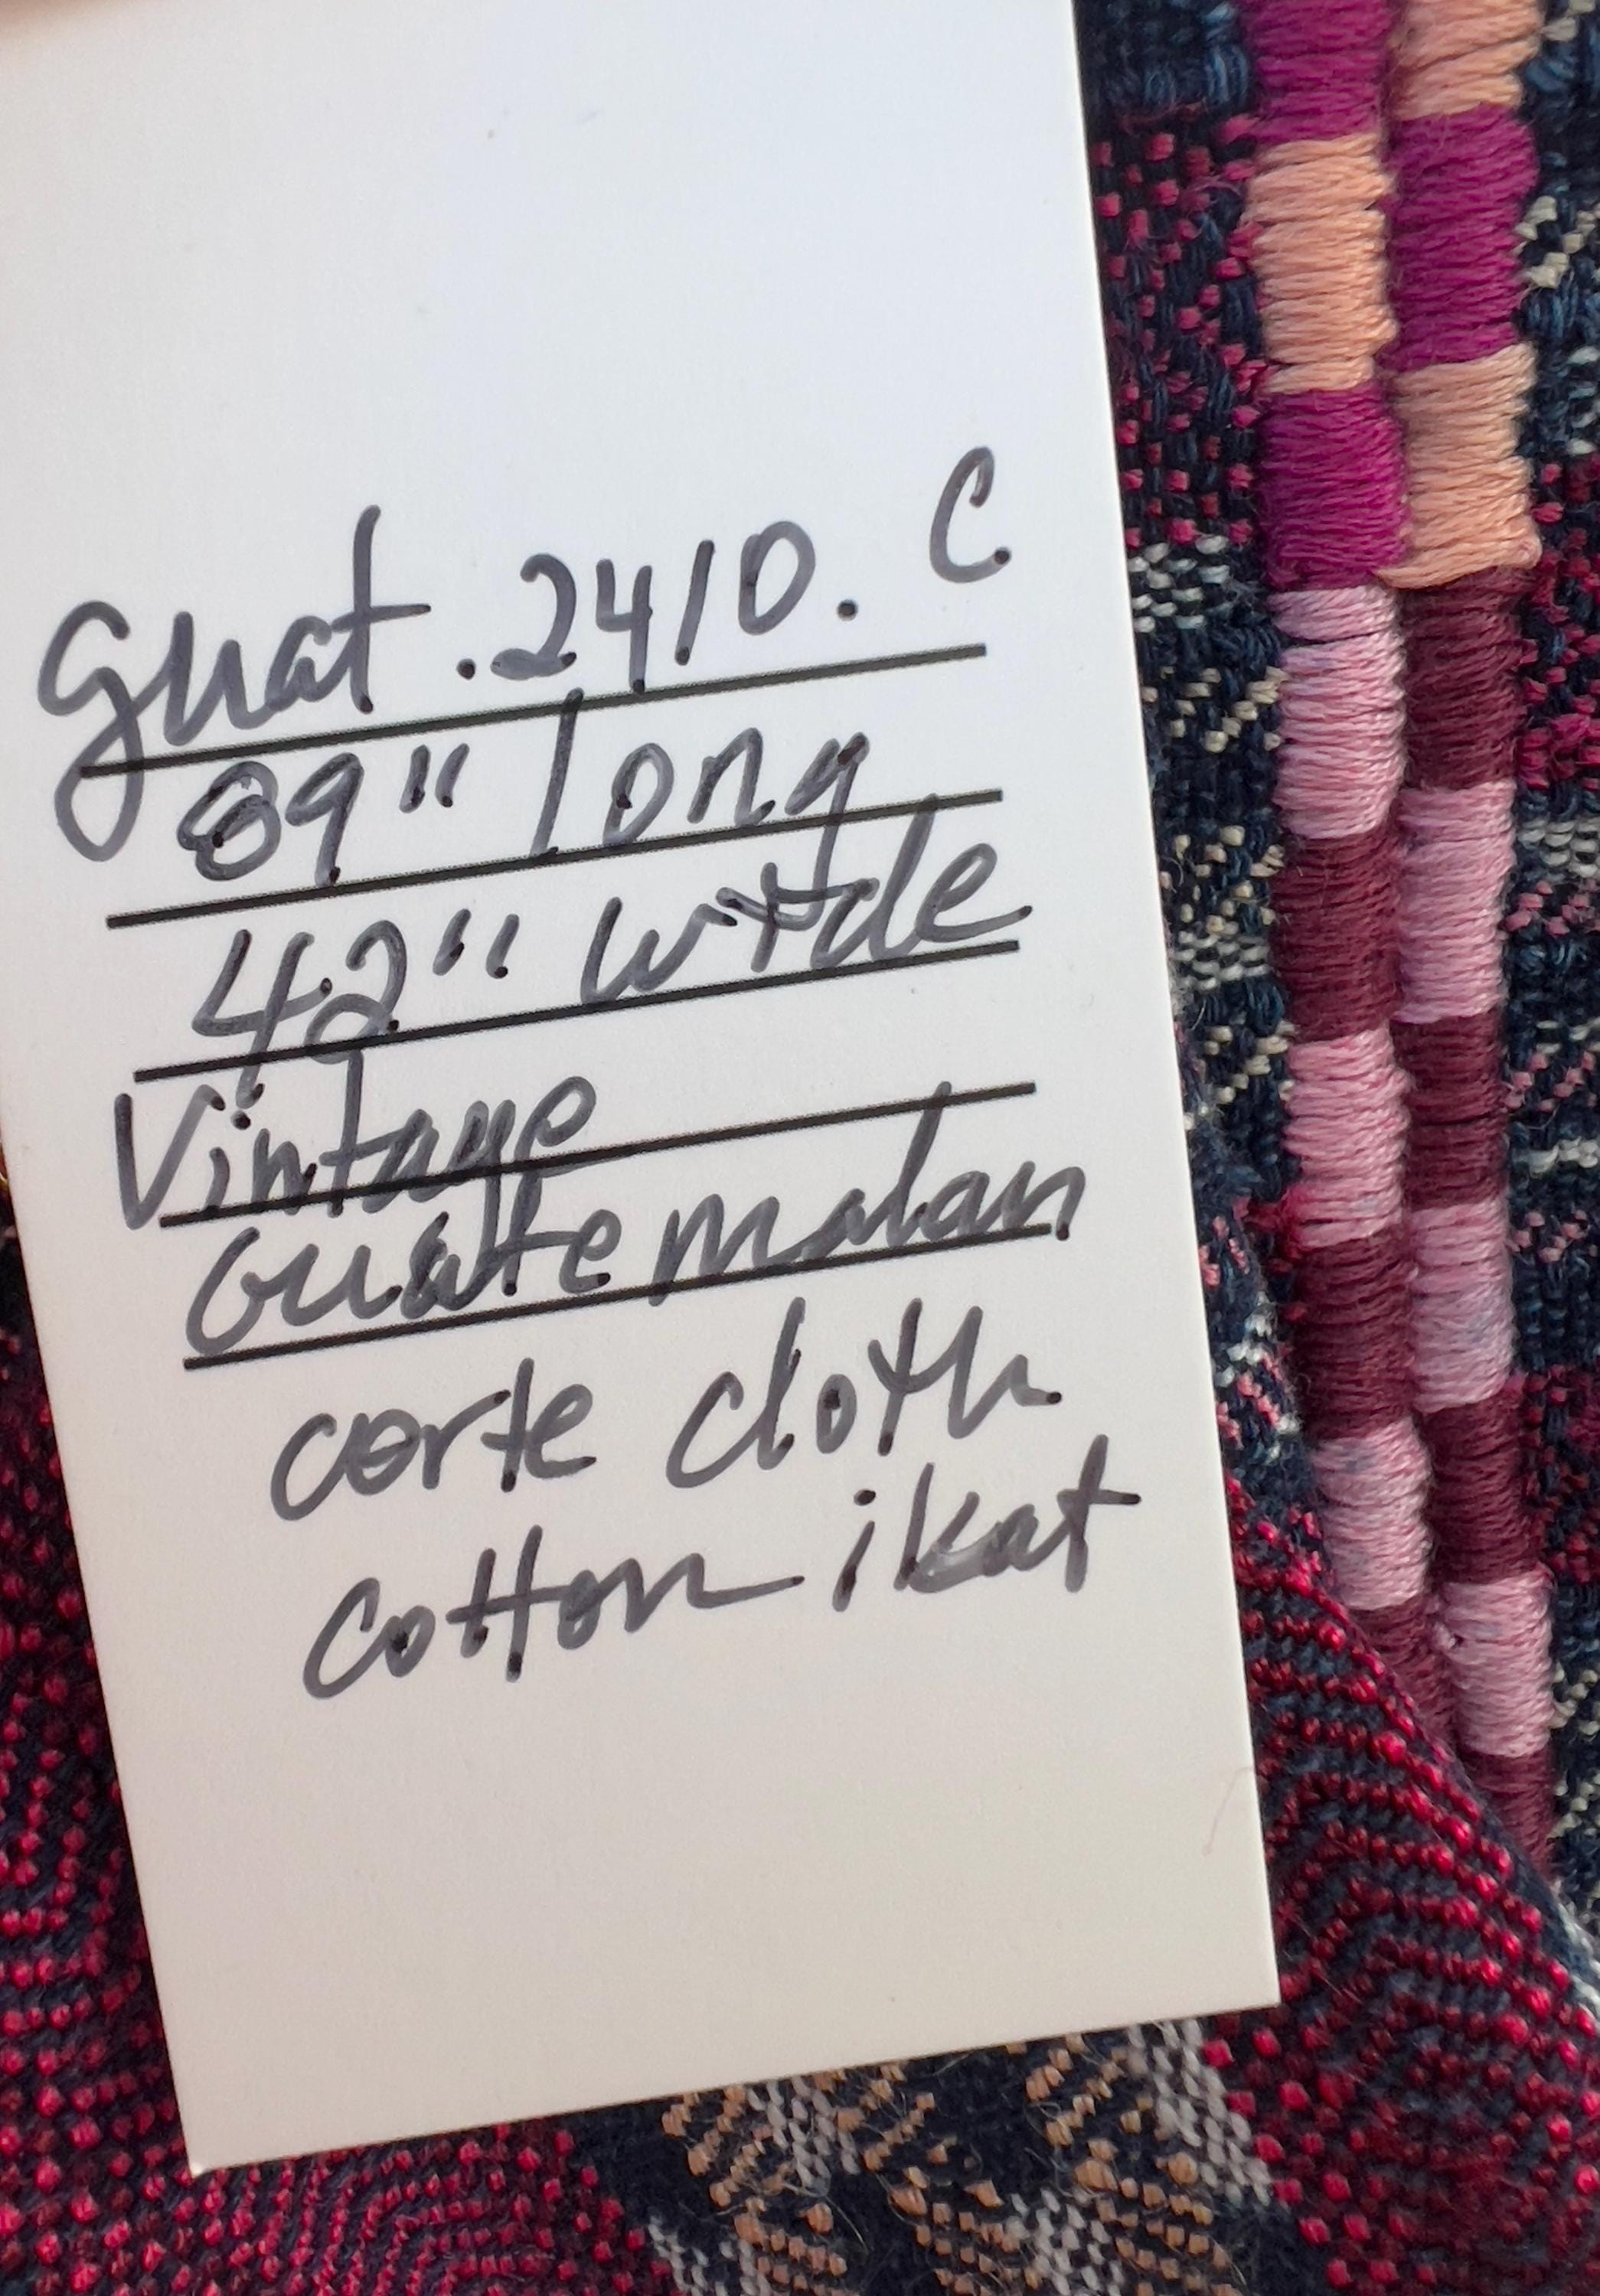 guat .2410. C
89" long
42" wide
Vintage
Guatemalan
corte cloth
cotton ikat